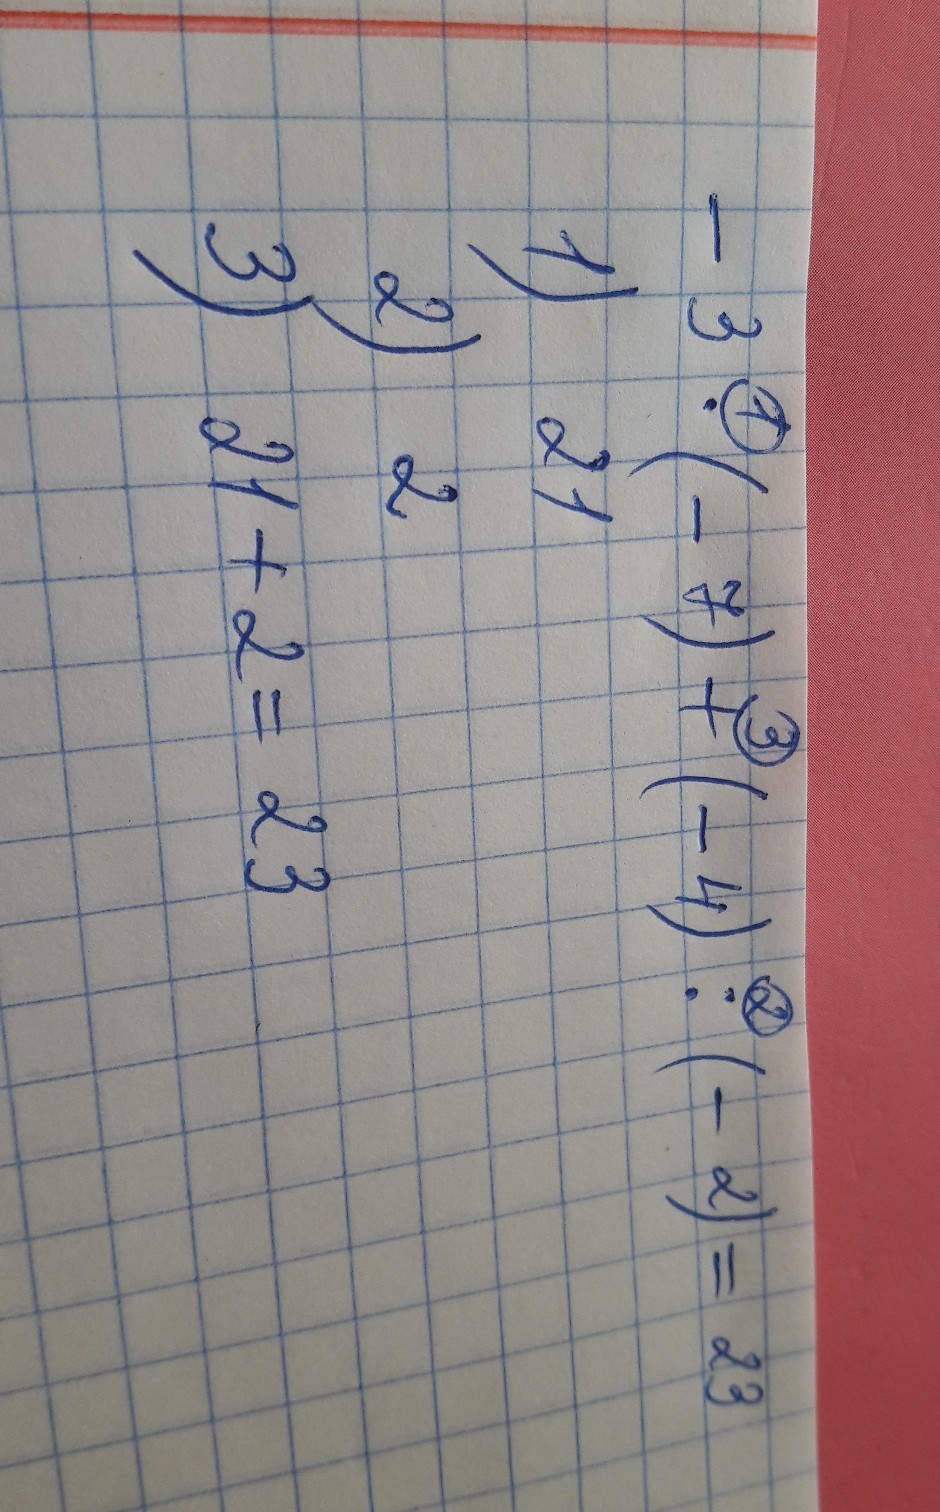 - 3 ·① (- 7) +③ (- 4) :② (- 2) = 23
1) 21
2) 2
3) 21 + 2 = 23